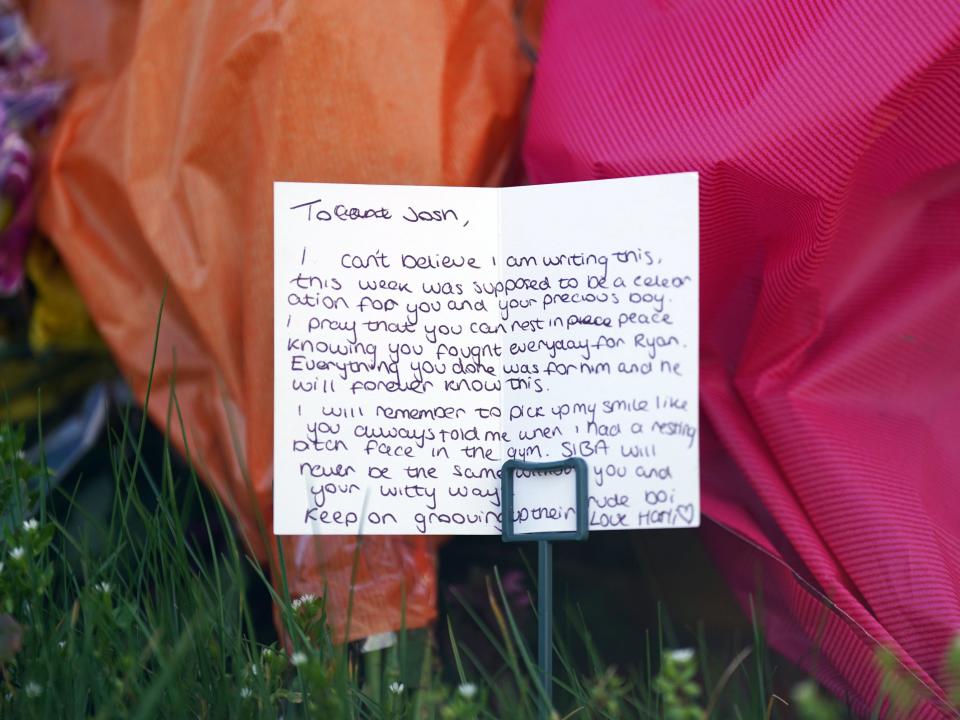 To Josh,
I can't believe I am writing this,
this week was supposed to be a celebr
ation for you and your precious boy.
I pray that you can rest in peace
knowing you fought everyday for Ryan.
Everything you done was for him and he
will forever know this.
I will remember to pick up my smile like
you always told me when I had a resting
bitch face in the gym. SIBA will
never be the same without you and
your witty ways rude boi
Keep on grooving up their Love Hari♡